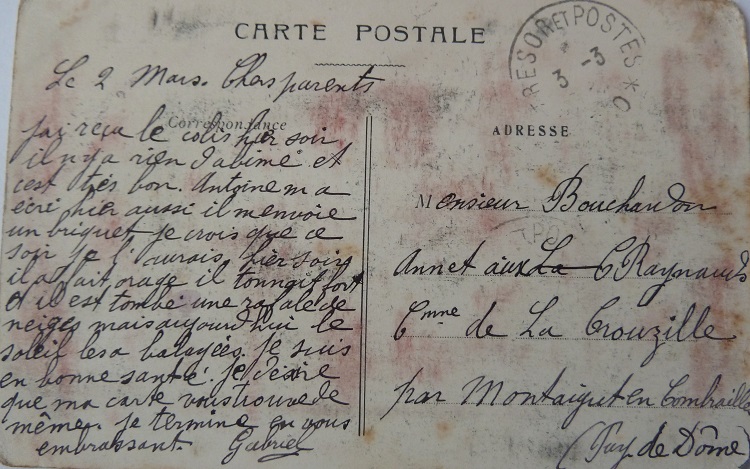 CARTE POSTALE
TRESOR ET POSTES * 
3 -3
Le 2 Mars. Chers parents
Correspondance
j'ai reçu le colis hier soir
il n'y a rien d'abimé et
c'est très bon. Antoine m'a
écri hier aussi il m'envoie
un briquet je crois que ce
soir je l'aurais. hier soir
il a fait orage il tonnait fort
et il est tombé une rafale de
neiges mais aujourd'hui le
soleil les a balayées. je suis
en bonne santé. je désire
que ma carte vous trouve de
même. je termine en vous
embrassant. Gabriel
ADRESSE
Monsieur Bouchaudon
Annet aux La C Raynauds
Cmne de La Crouzille
par Montaigut en Combrailles
(Puy de Dôme)